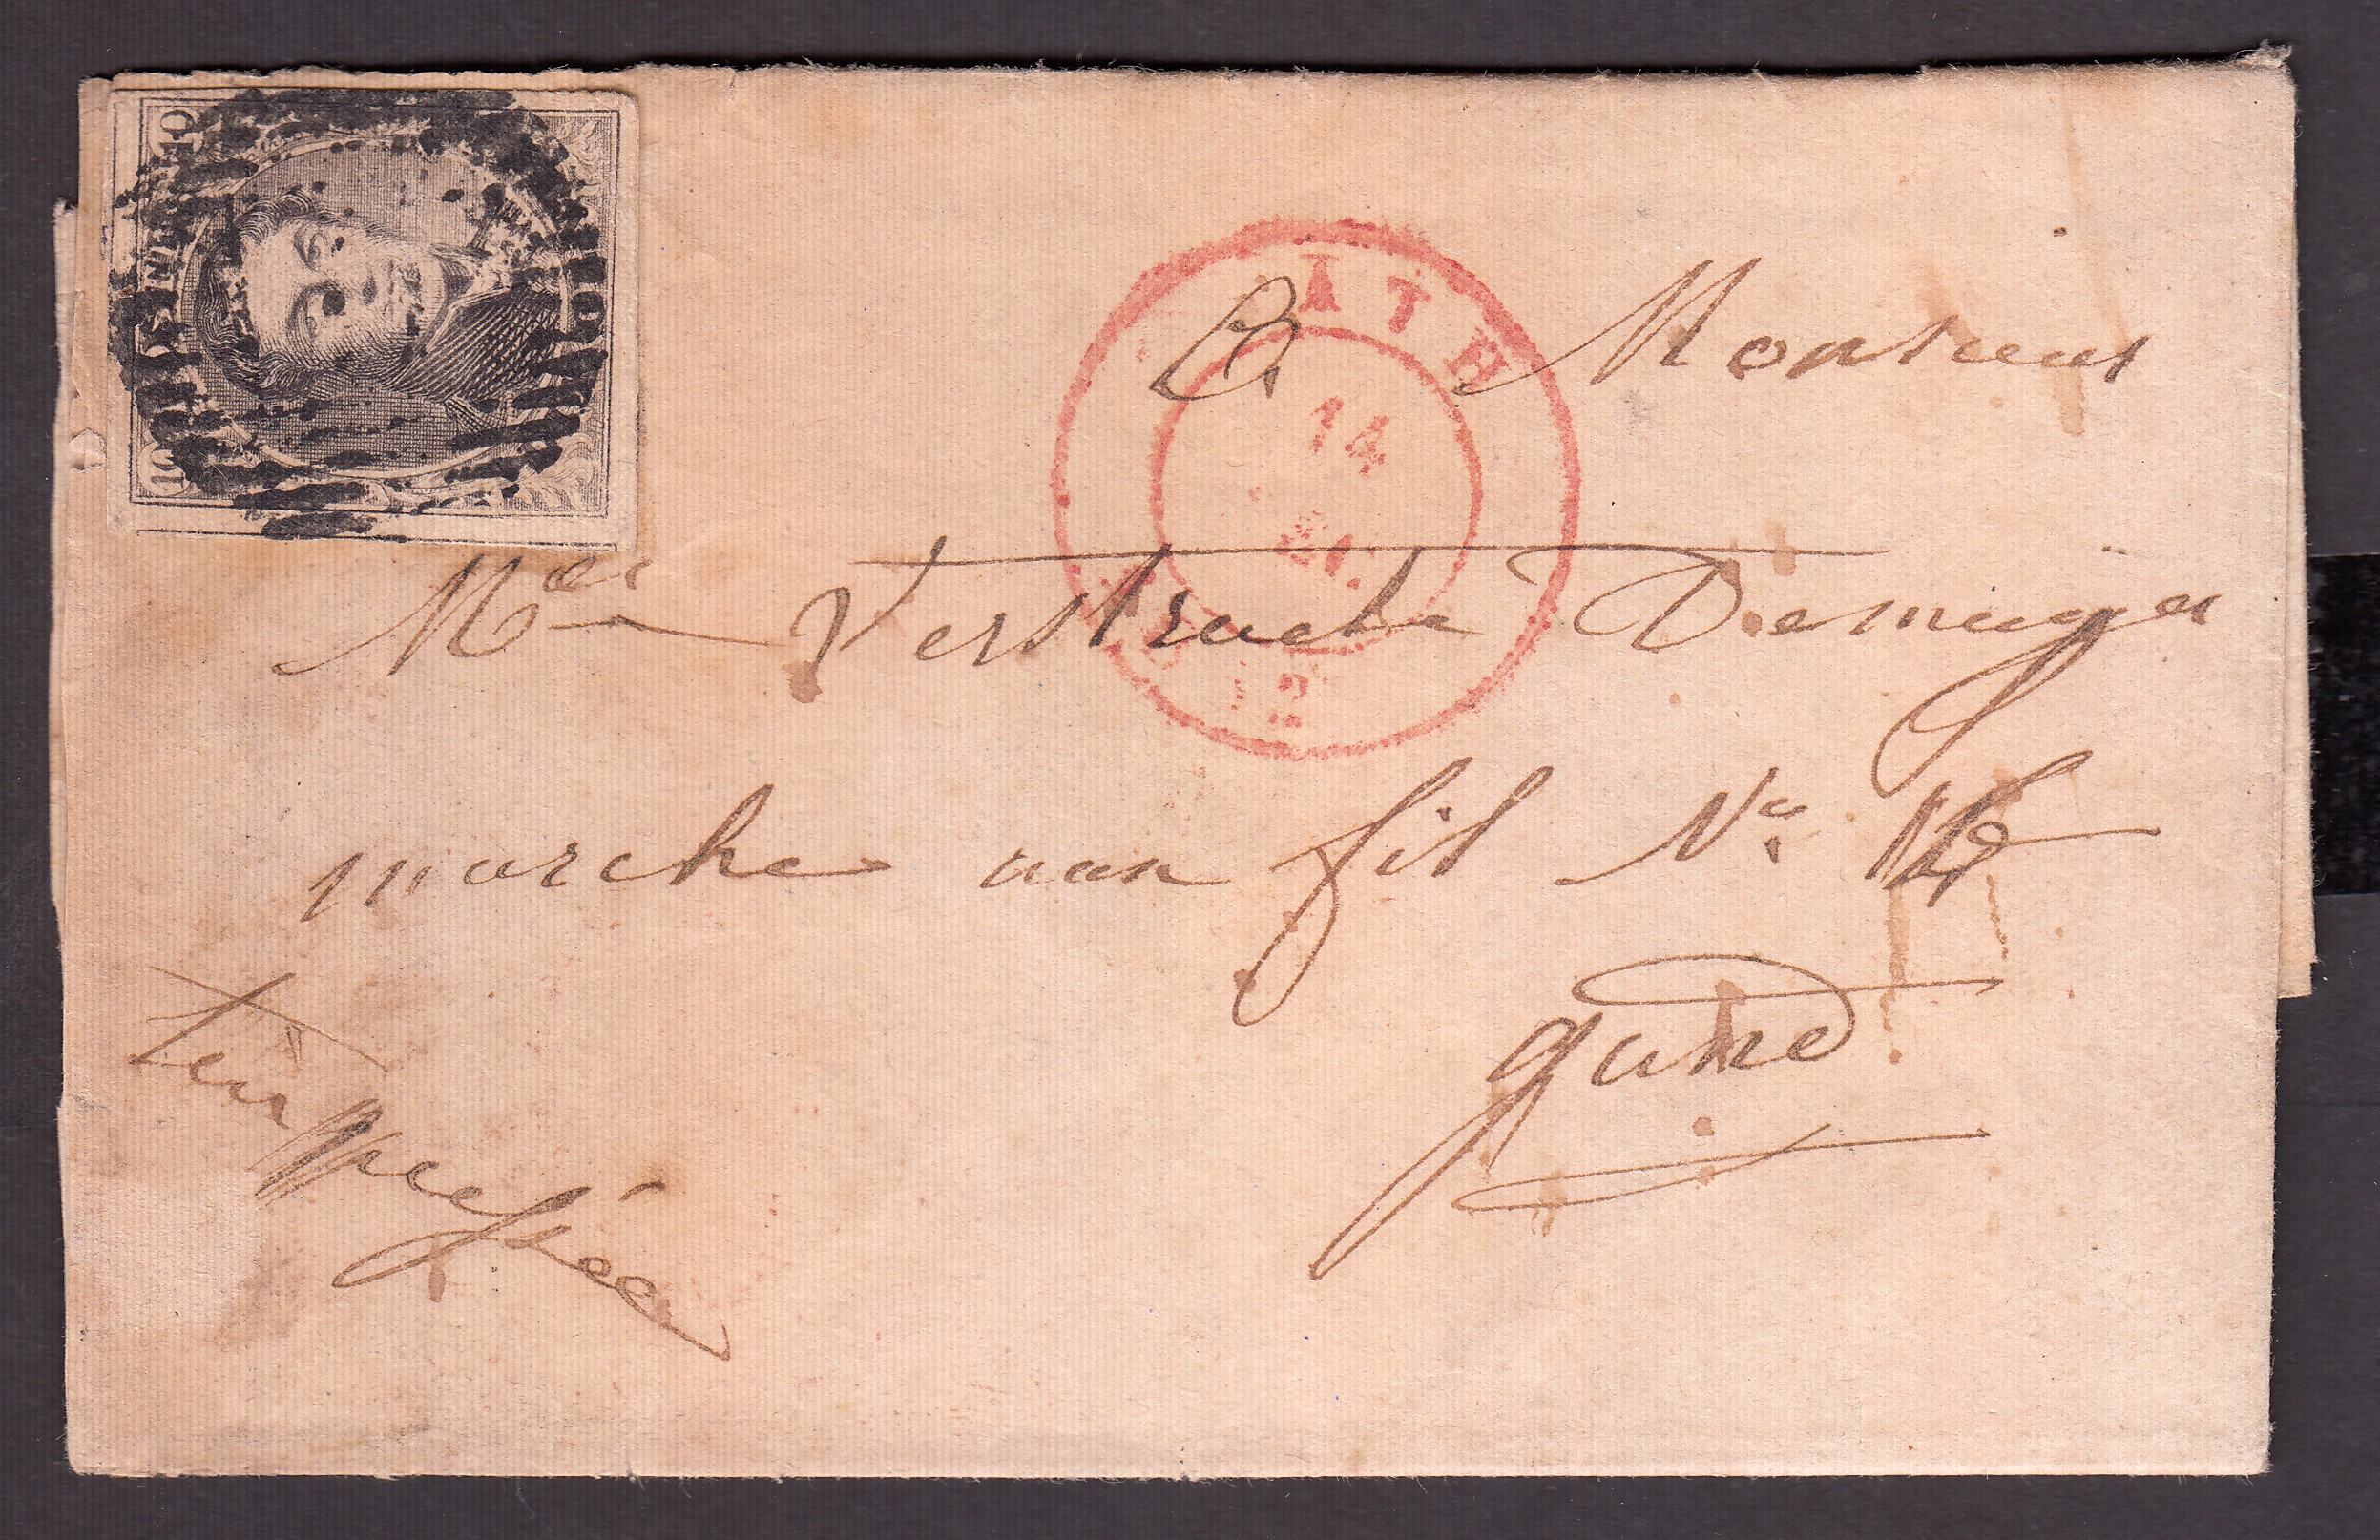 10
10
ATH
14
12
A Monsieur
Mr Verstraete Demeyer
marche aux fil No
gand
très pressée